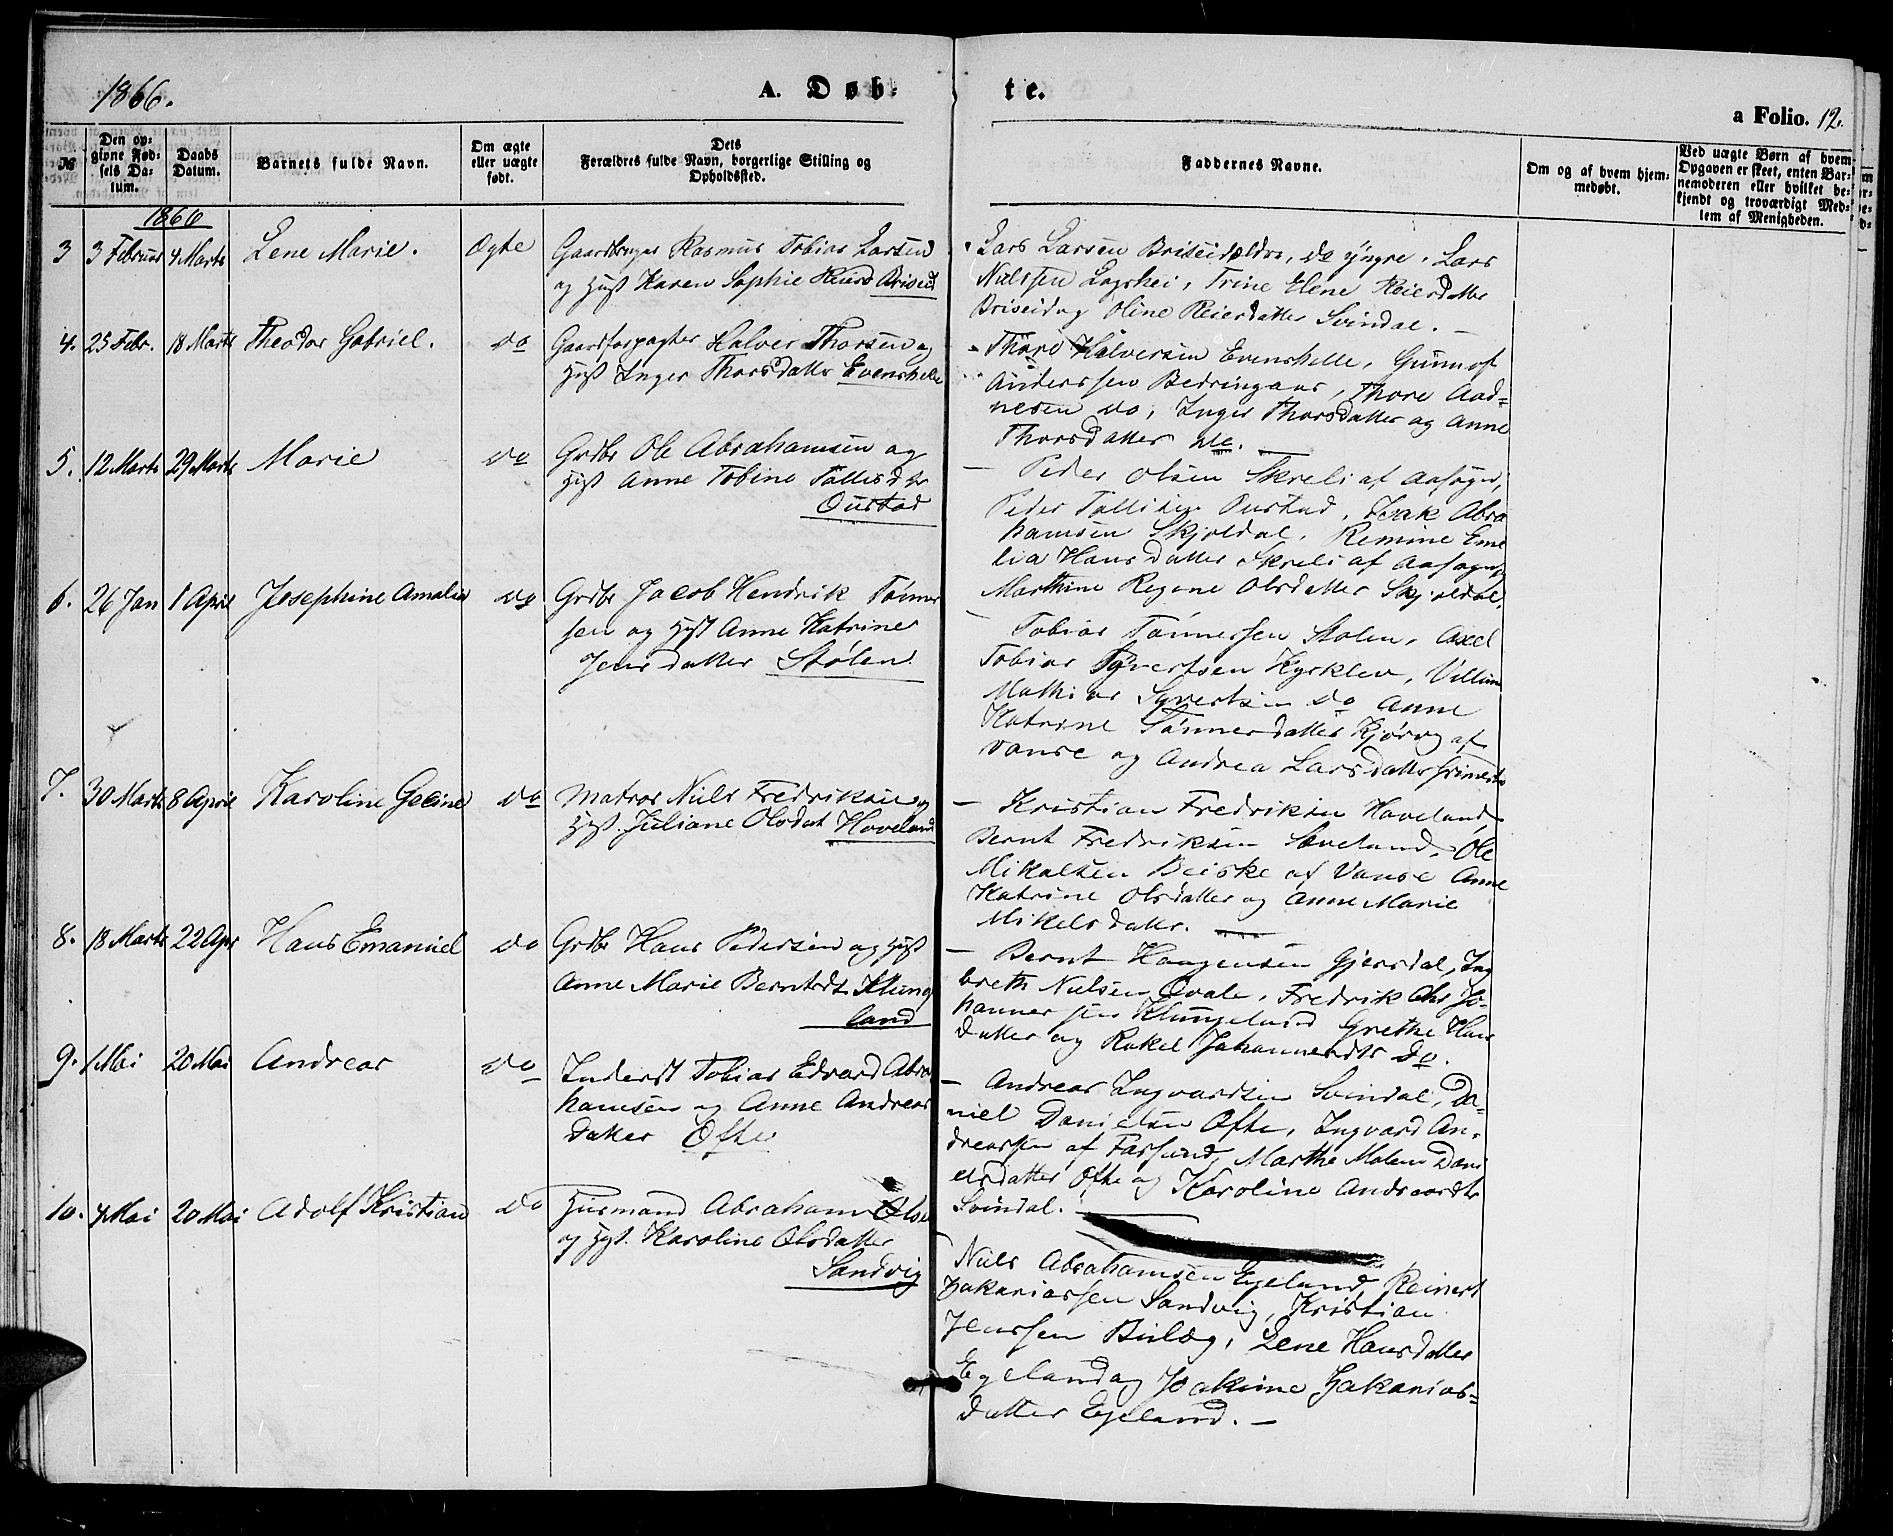 1866.
A. Døb-
te.
a Folio. 12.
№
Den op-
givne Fød-
sels Da-
tum.
Daabs
Datum.
Barnets fulde Navn.
Om ægte
eller uægte
født.
Dets
Forældres fulde Navn, borgerlige Stilling og
Opholdssted.
Faddernes Navne.
Om og af hvem hjem-
medøbt.
Ved uægte Børn af hvem
Opgaven er skeet, enten Bar-
nemoderen eller hvilket be-
kjendt og troværdigt Med-
lem af Menigheden.
1866
3 3 Februar 4 Marts Lene Marie. Ægte
Gaardbruger Rasmus Tobias Larsen
og Hust Karen Sophie Reiersd Briseid
Lars Larsen Briseid ældre, do yngre. Lars
Nielssen Log­shei, Trine Elene Reiersdatter
Briseid og Oline Reiersdatter Svindal. —
4. 25 Febr. 18 Marts Theodor Gabriel. do
Gaardforpagter Halver Thorsen og
Hust Inger Thorsdatter Evenshelle
- Thore Halversen Evenshelle, Gunnof
Anderssen Bedringaas, Thore Aad=
nesen do, Inger Thorsdatter og Anne
Thorsdatter do. —
5. 12 Marts 29 Marts Marie do
Grdbr Ole Abrahamsen og
Hust Anne Tobine Tollisdtr
Oustad
— Peder Olsen Skreli af Aasogn,
Peder Tollisen Oustad, Isak Abra
hamsen Skjoldal, Remine Eme
lia Hansdatter Skreli af Aasogn og
Marthine Regine Olsdatter Skjoldal,
6. 26 Jan 1 April Josephine Amalia do
Grdbr Jacob Hendrik Tønnes
sen og Hust Anne Katrine
Jensdatter Stølen
— Tobias Tønnessen Stølen, Axel
Tobias Syvertsen Kyrklev, Villum
Mathias Syvertsen do Anne
Katrine Tønnesdatter Kjørrog af
Vanse og Andrea Larsdatter
7. 30 Marts 8 April Karoline Geline do
Matros Niels Fredriksen og
Hust. Juliane Olsdat Hoveland
— Kristian Fredriksen Hoveland,
Bernt Fredriksen Sæveland, Ole
Mikalsen Beiske af Vanse Anne
Katrine Olsdatter og Anne Marie
Mikelsdatter. —
8. 18 Marts 22 Apr Hans Emanuel do
Grdbr Hans Pedersen og Hust
Anne Marie Berntsdt Klung
land
— Bernt Haagensen Gjersdal, Ing
breth Nielsen Qvale, Fredrik Chr Jo-
hannessen Klungeland Grethe Hans
datter og Rakel Johannesdtr do.
9. 1 Mai 20 Mai Andreas do
Inderst Tobias Edvard Abra
hamsen og Anne Andreas
datter Ofte
— Andreas Ingvardsen Svindal, Da-
niel Danielsen Ofte, Ingvard An-
dreassen af Farsund, Marthe Malene Dani
elsdatter Ofte og Karoline Andreasdtr
Svindal.
10. 4 Mai 20 Mai Adolf Kristian do
Husmand Abraham Olsen
og Hust. Karoline Olsdatter
Sandvig
Niels Abrahamsen Egeland, Reinert
Zakariassen Sandvig, Kristian
Jenssen Buleg, Lene Hansdatter
Egeland og Joakime Zakarias=
datter Egeland. —